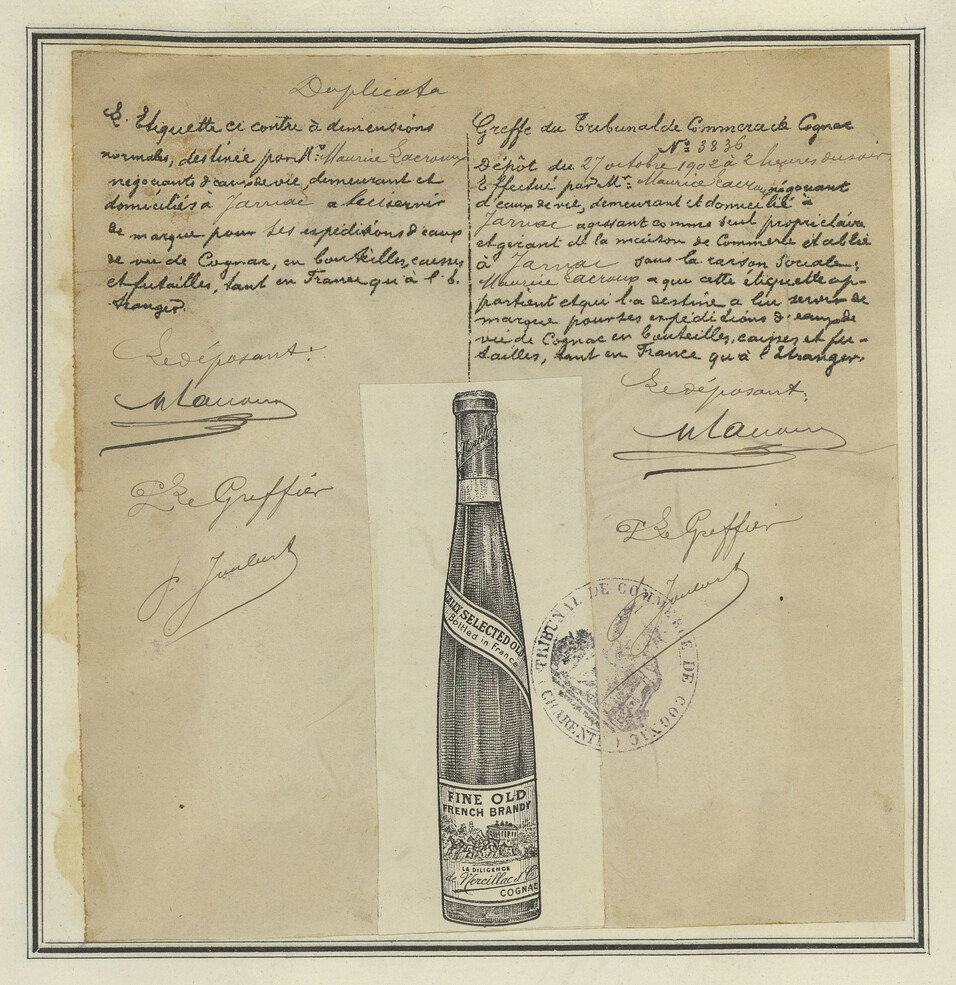 Duplicata
L'Etiquette ci contre à dimensions
normales, destinée par Mr. Maurice Lacroux
négociants d'eaux de vie, demeurant et
domiciliés à Jarnac a lui servir
de marque pour ses expéditions d'eaux
de vie de Cognac, en bouteilles, caisses
et futailles, tant en France qu'à l'E-
tranger.
Le déposant:
MLacroux
P. Le Greffier
Greffe du Tribunal de Commerce de Cognac
No 3836
Dépôt du 27 octobre 1902 à 2 heures du soir
Effectué par Mr. Maurice Lacroux négociant
d'eaux de vie, demeurant et domicilié à
Jarnac agissant comme seul propriétaire
et gérant de la maison de Commerce établie
à Jarnac sous la raison Sociale:
Maurice Lacroux a qui cette étiquette ap-
partient et qui l'a destine a lui servir de
marque pour ses expéditions d'eaux de
vie de Cognac en bouteilles, caisses et fu-
tailles, tant en France qu'à l'Etranger.
Le déposant:
MLacroux
P. Le Greffier
TRIBUNAL DE COMMERCE DE COGNAC
CHARENTE
SELECTED OLD
Bottled in France
FINE OLD
FRENCH BRANDY
LA DILIGENCE
de Norcillac & Co
COGNAC